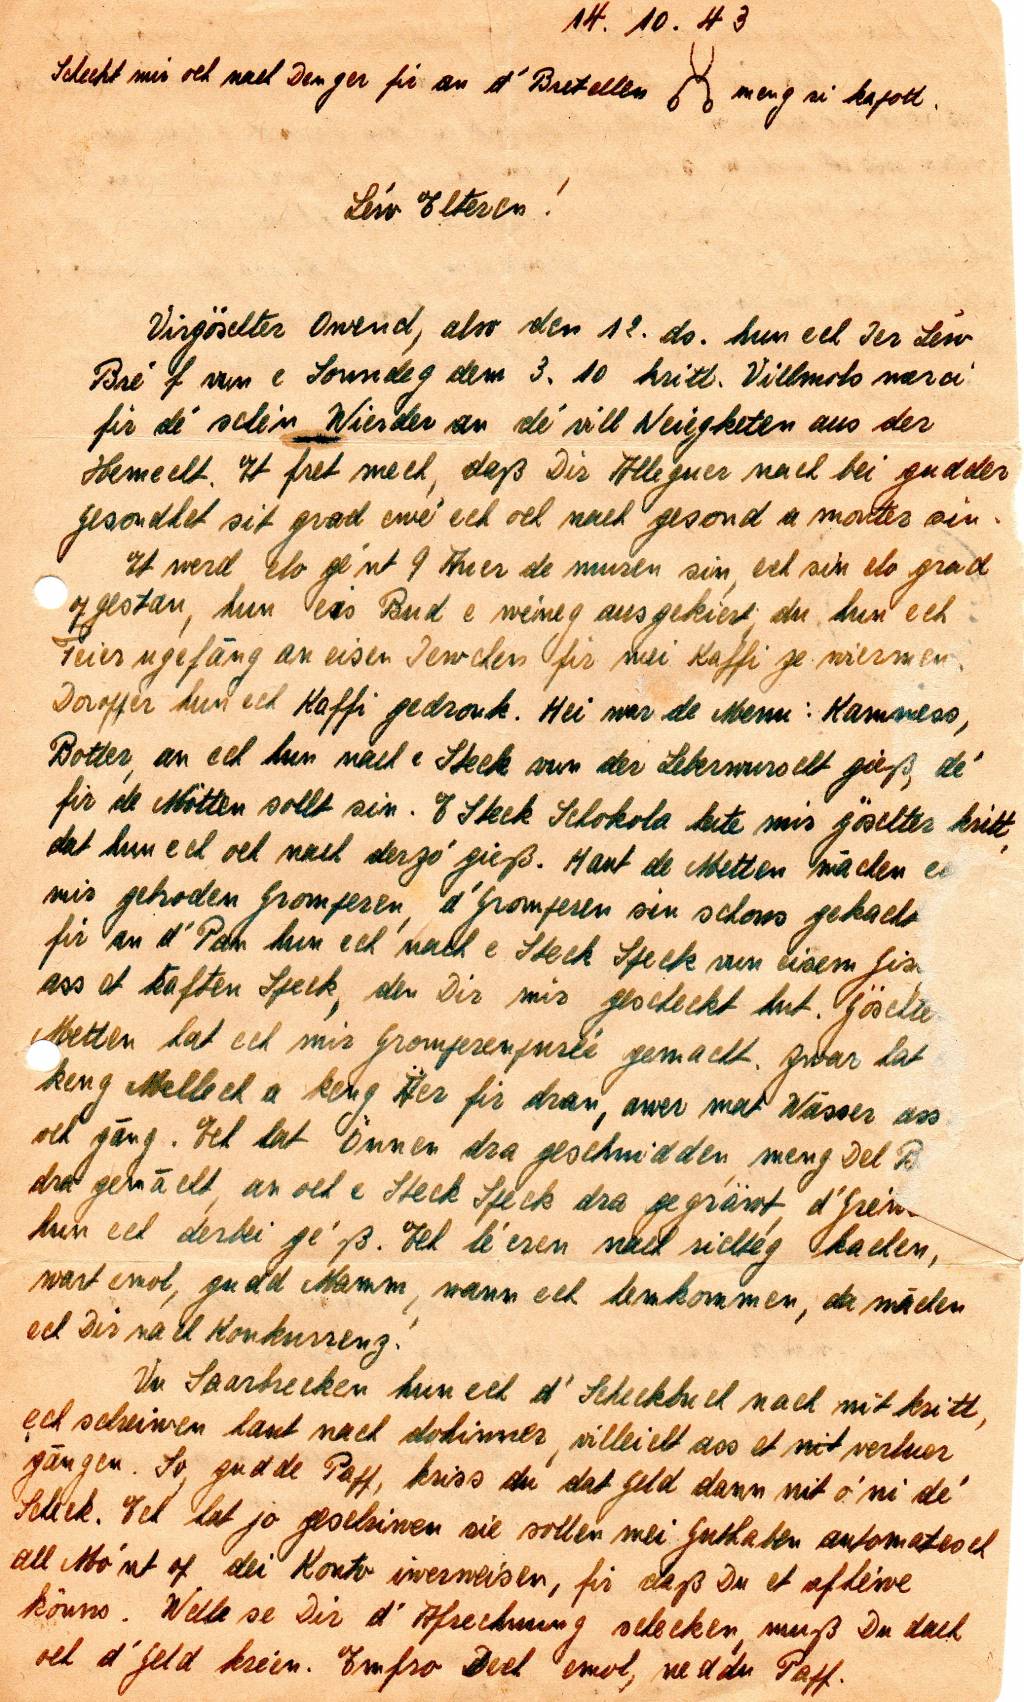 14. 10. 43
Scheckt mir och nach Denger fir an d' Bretellen meng si kapott.
Léiw Elteren!
Virgöschter Owend, also den 12. ds. hun ech Ier Léiw
Bréf vun e Sonndeg dem 3. 10 kritt. Villmols merci
fir dé schéin Wierder an dé vill Neiegketen aus der
Hemecht. Et fret mech, daß Dir Alleguer nach bei gudder
Gesondhet sit grad ewé ech och nach gesond a monter sin.
Et werd elo gént 9 Auer de muren sin, ech sin elo grad
opgestan, hun eis Bud e wéineg ausgekiert, du hun ech
Feier ugefāng an eisen Iewchen fir mei Kaffi ze wiermen.
Doropper hun ech Kaffi gedronk. Hei war de Menu: Kammess,
Botter, an ech hun nach e Steck vun der Leberwurscht gieß, dé
fir de Mötten sollt sin. E Steck Schokola hate mir göschter kritt,
dat hun ech och nach derzó gieß. Haut de Metten māchen
mir gebroden Gromperen, d' Gromperen sin schons gekacht
fir an d' Pan hun ech nach e Steck Speck vun eisem
ass et kaften Speck, den Dir mir gescheckt hut.
Metten hat ech mir Gromperenpuréi gemacht. Zwar hat
keng Mellech a keng Äer fir dran, awer mat Wāsser ass
och gāng. Ech hat Önnen dra geschnidden, meng Del
dra gemācht, an och e Steck Speck dra gegrāwt,
hun ech derbei géß. Ech léeren nach richtég kachen,
wart emol, gudd Mamm, wann ech hemkommen, da māchen
ech Dir nach Konkurrenz!
Vu Saarbrecken hun ech d' Scheckbuch nach nit kritt,
ech schreiwen haut nach dohinner, villeicht ass et nit verluer
gāngen. So, gudde Papp, kriss du dat Geld dann nit óni dé
Scheck. Ech hat jo geschriwen sie sollen mei Guthaben automatesch
all Mónt op dei Konto iwerweisen, fir daß Du et ophéwe
könns. Welle se Dir d' Ofrechnung schecken, muß Du dach
och d' Geld kréien. Emfro Dech emol, nedd du Papp.